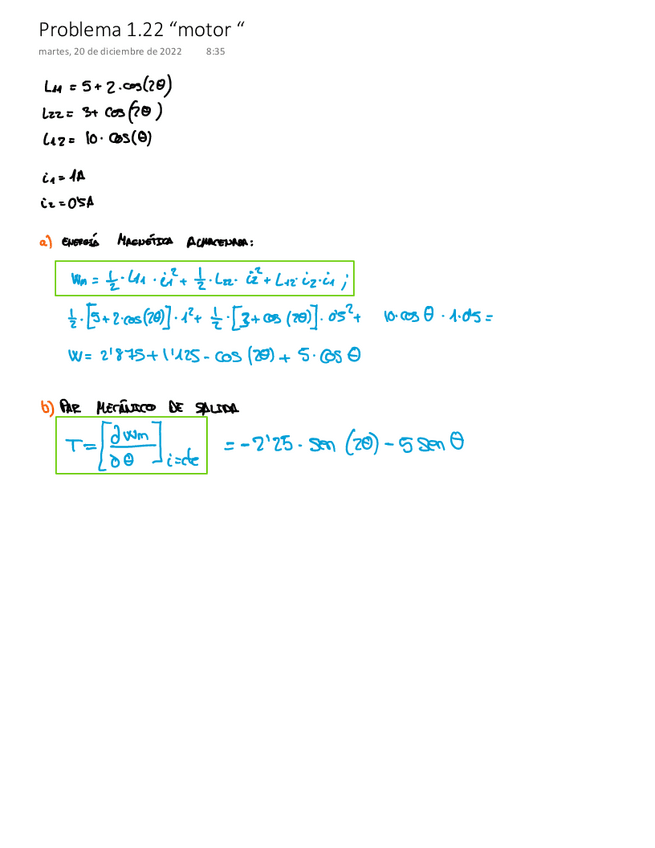 Problema 1.22 “motor “
martes, 20 de diciembre de 2022 8:35
L11 = 5 + 2·cos(2θ)
L22 = 3 + cos(2θ)
L12 = 10·cos(θ)
i1 = 1A
i2 = 0'5A
a) ENERGÍA MAGNÉTICA ALMACENADA:
Wm = 1/2 · L11 · i1² + 1/2 · L22 · i2² + L12 · i2 · i1 ;
1/2 · [5 + 2·cos(2θ)] · 1² + 1/2 · [3 + cos (2θ)] · 0'5² + 10·cos θ · 1·0'5 =
W = 2'875 + 1'125 - cos (2θ) + 5 · cos θ
b) PAR MECÁNICO DE SALIDA
T = [∂Wm/∂θ] i=cte = -2'25 · sen (2θ) - 5 sen θ